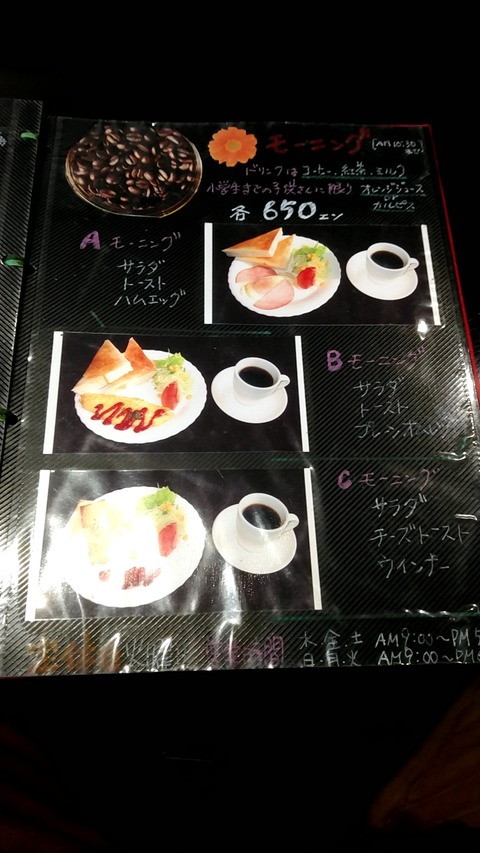 モーニング
[AM10:30まで]
ドリンクは コーヒー、紅茶、ミルク
小学生までの子供さんに限り オレンジジュース
or
カルピス
各 650エン
A モーニング
サラダ
トースト
ハムエッグ
B モーニング
サラダ
トースト
プレーンオムレツ
C モーニング
サラダ
チーズトースト
ウインナー
営業時間 水.金.土 AM9:00~PM5
日.月.火 AM9:00~PM